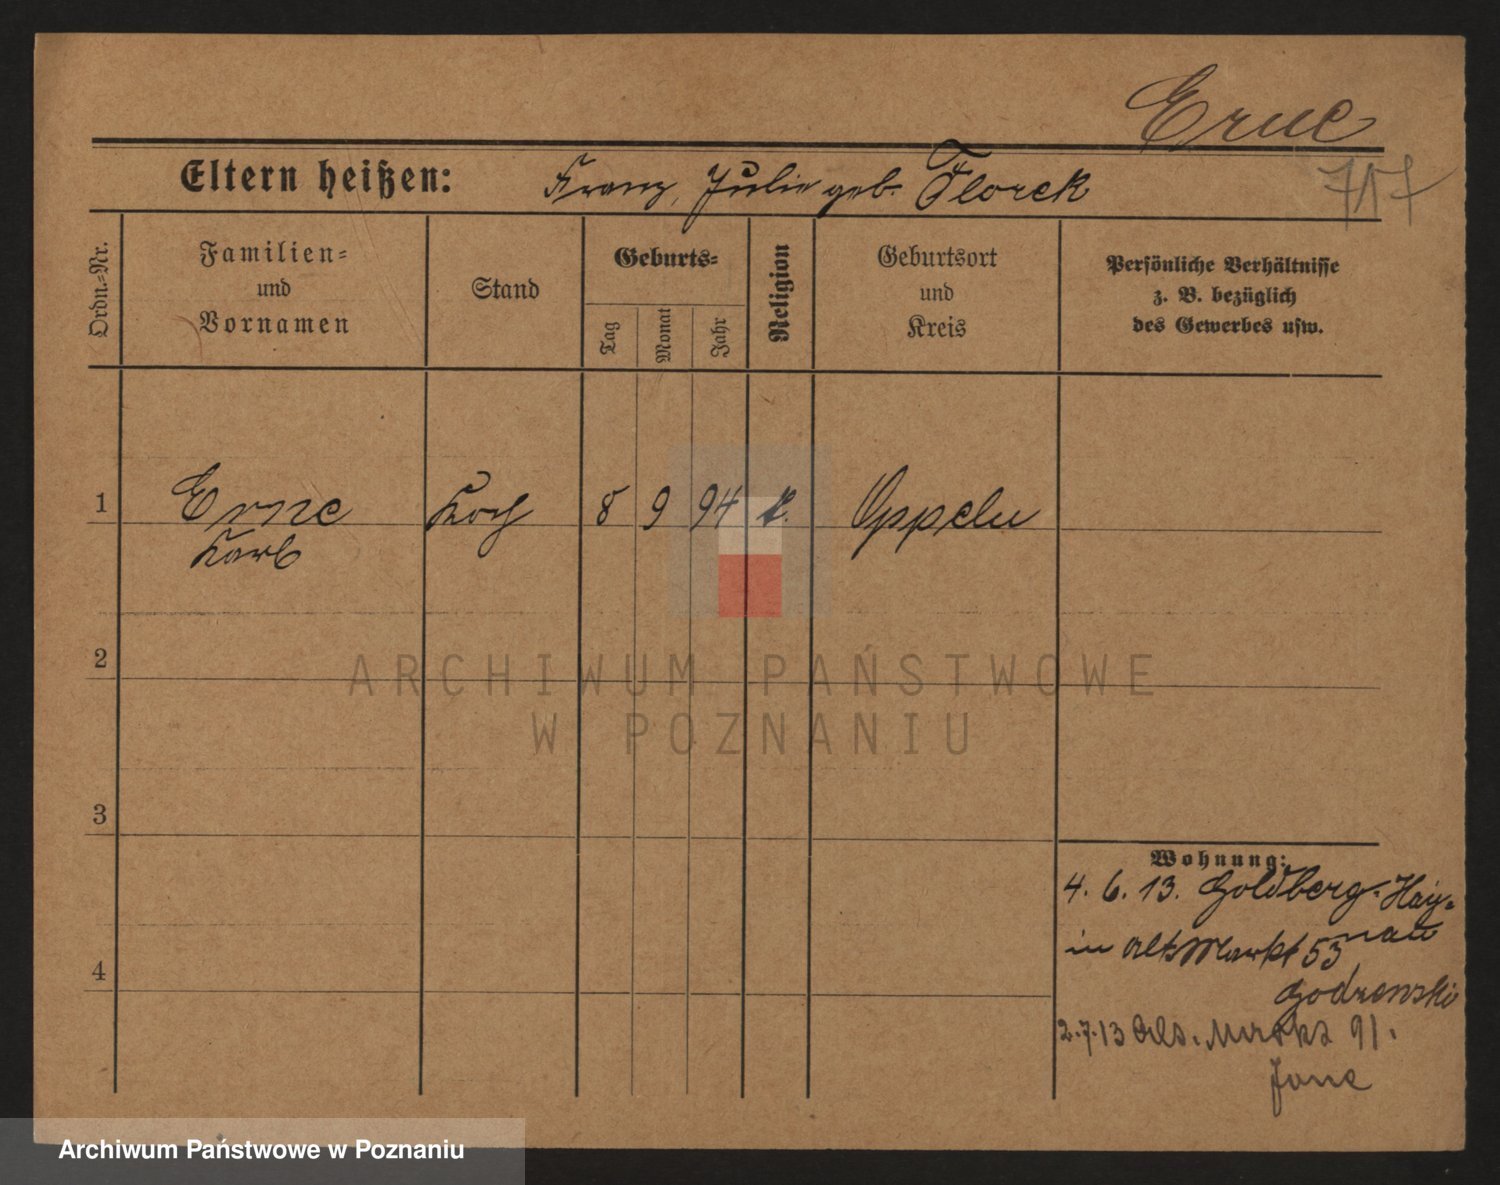 Erne
717
Eltern heißen: Franz, Julie geb. Florek
Ordn.-Nr.
Familien-
und
Vornamen
Stand
Geburts-
Tag
Monat
Jahr
Religion
Geburtsort
und
Kreis
Persönliche Verhältnisse
z. B. bezüglich
des Gewerbes usw.
1 Erne Koch 8 9 94 k. Oppeln
2
3
4
Wohnung:
4. 6. 13. Goldberg-Hay-
nau
in Alts Markt 53
2.7.13 Als. Markt 91.
ARCHIWUM PAŃSTWOWE
W POZNANIU
Archiwum Państwowe w Poznaniu